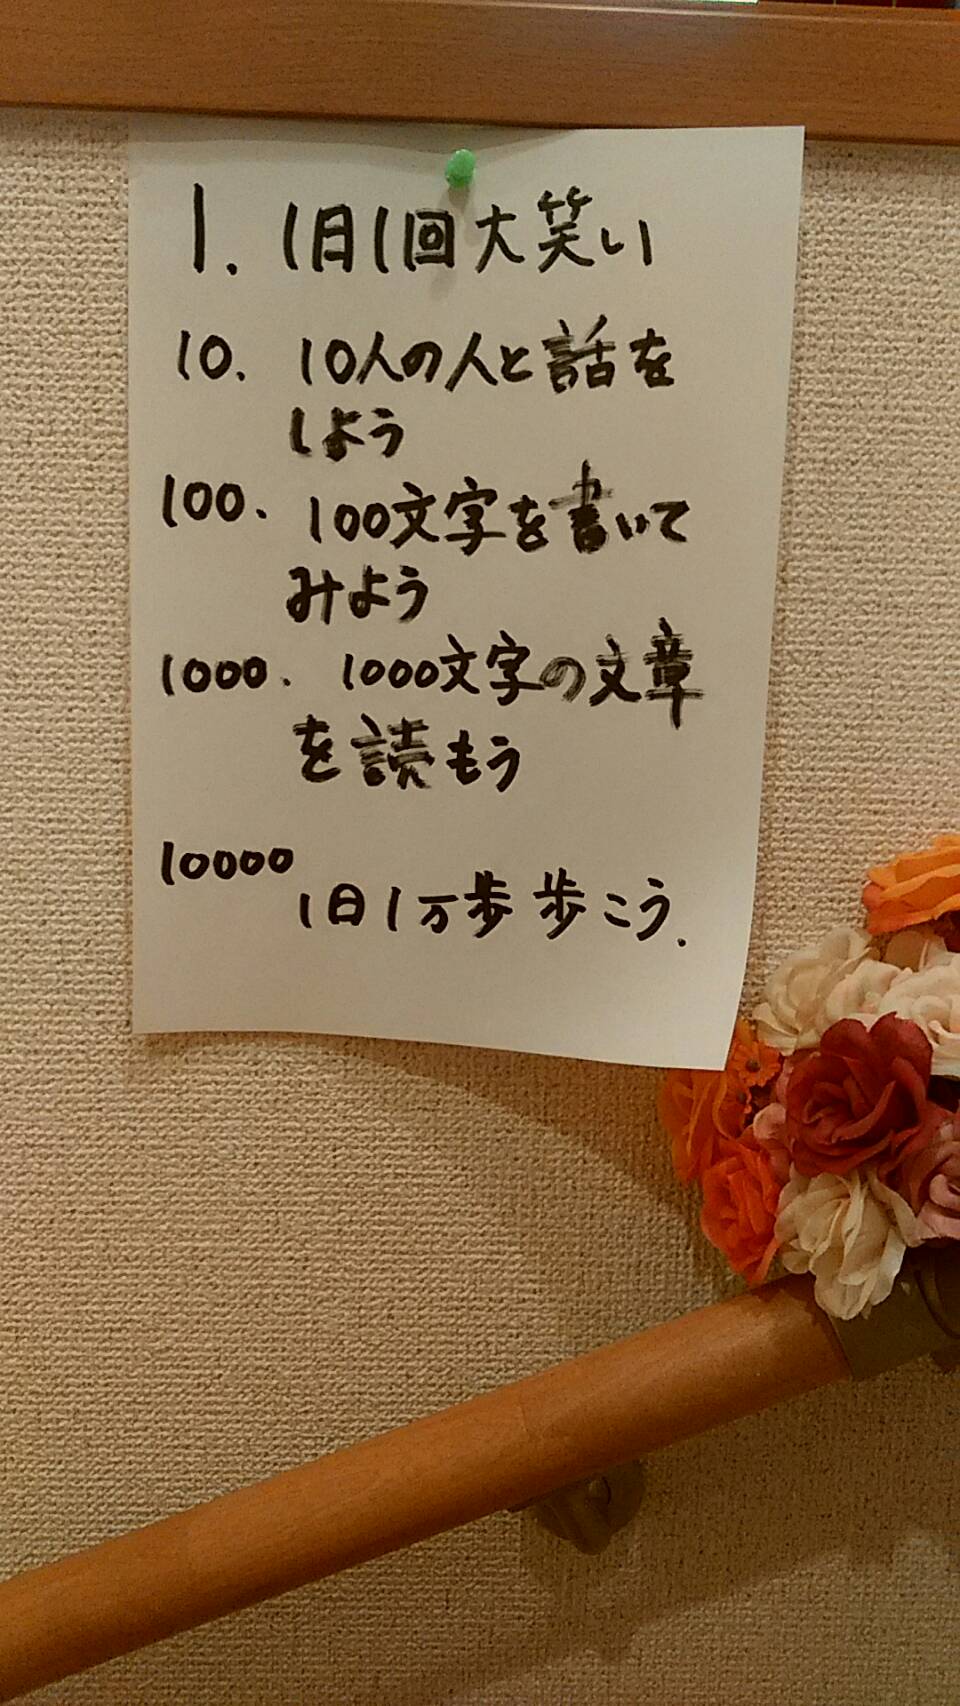 1. 1日1回大笑い
10. 10人の人と話を
しよう
100. 100文字を書いて
みよう
1000. 1000文字の文章
を読もう
10000
1日1万歩歩こう.